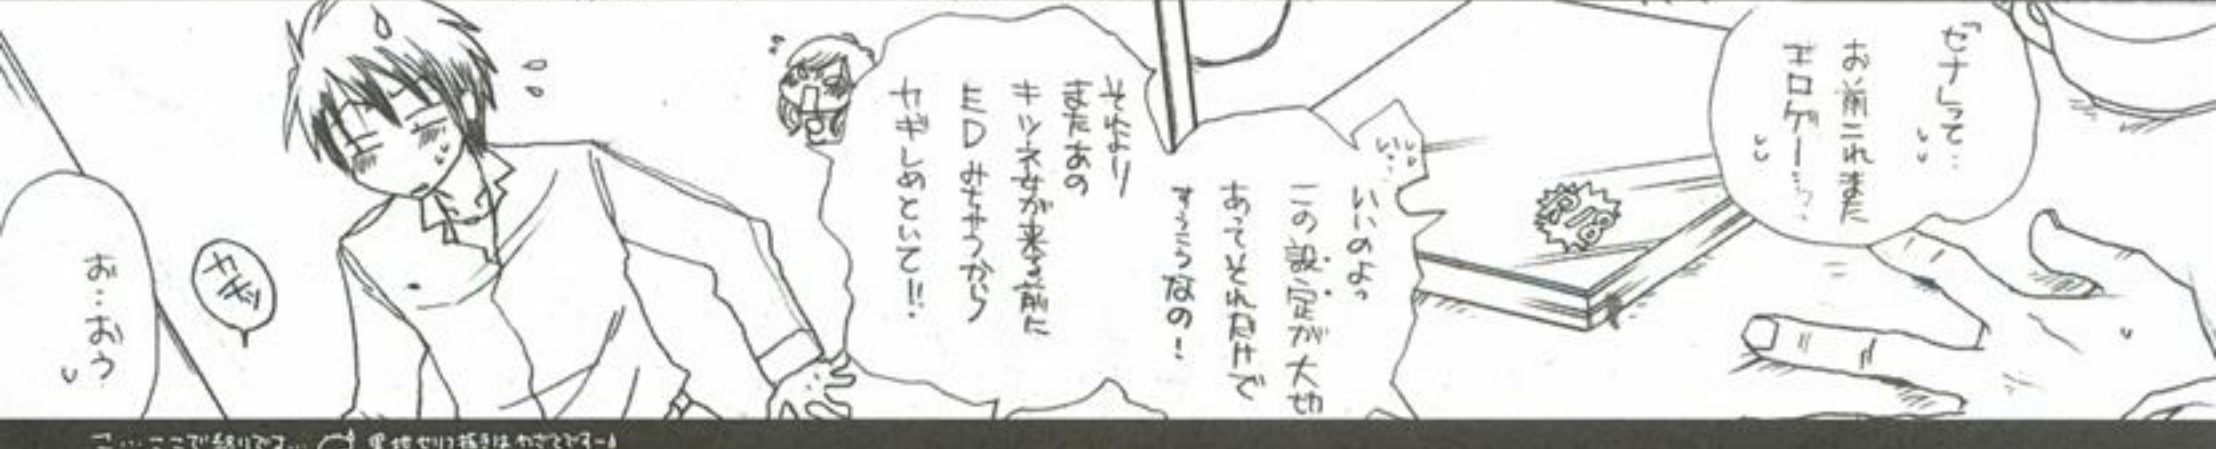 「セナ」って…
お前これまた
エロゲーっ…
い…
いいのよっ
この設定が大切
あってそれだけで
すうこうなの！
それより
またあの
キツネ女が来る前に
ED みちゃうから
カギしめといて!!
カギッ
お…おう
こ…ここで終りです…